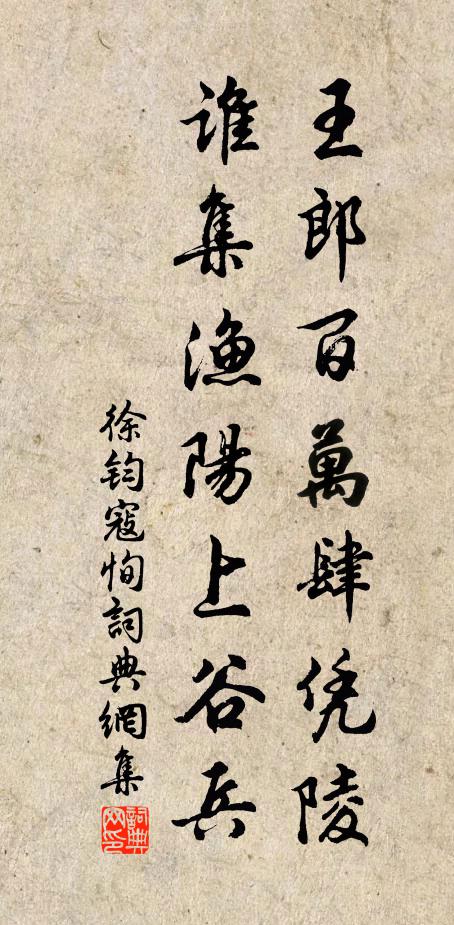 王郎百萬肆凭陵
誰集漁陽上谷兵
徐鈞寇恂詞典網集
詞典网印